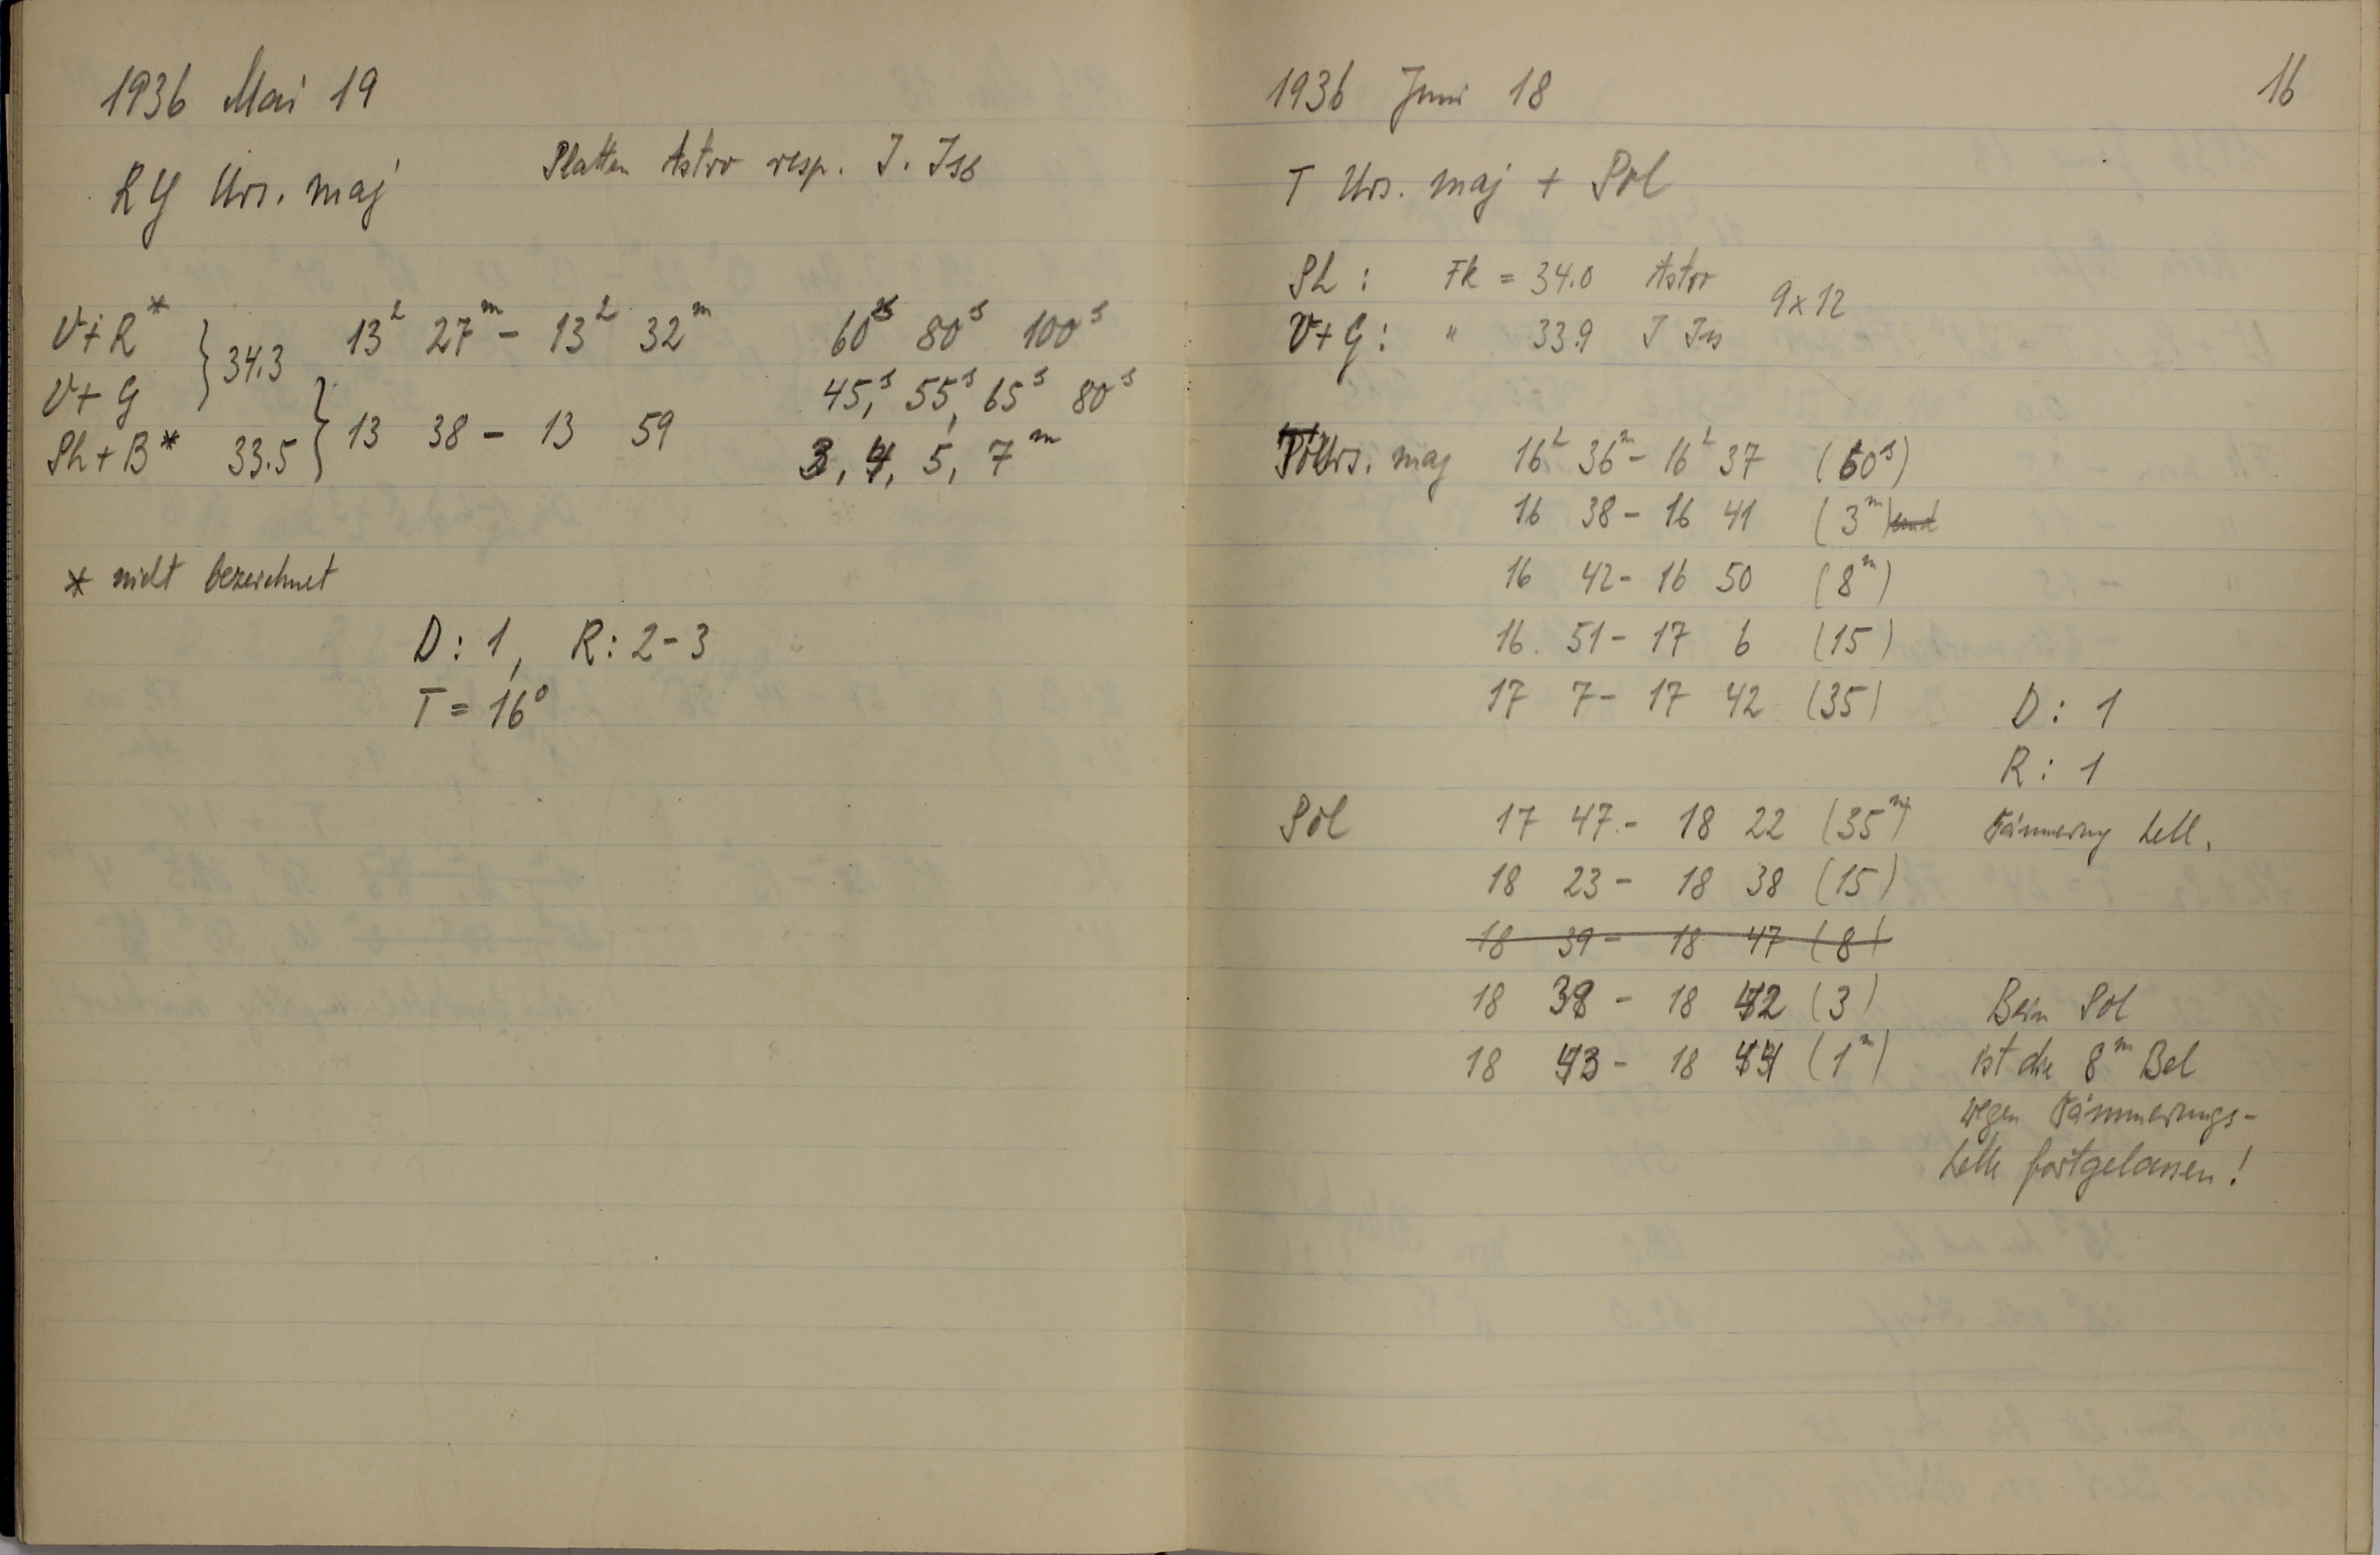 1936 Mai 19
Platten Astro resp. J. Iso
RY Urs. maj
V+R* } 34.3 13h 27m - 13h 32m 60s 80s 100s
V+G 45,s 55,s 65s 80s
Ph+B* 33.5 } 13 38 - 13 59 3, 4, 5, 7m
* nicht bezeichnet
D: 1, R: 2-3
T = 16°
16
1936 Juni 18
T Urs. maj + Pol
Ph: Fk = 34.0 Astro 9x12
V+G: " 33.9 J Iso
Urs. maj 16h 36m - 16h 37 (60s)
16 38 - 16 41 (3m)
16 42 - 16 50 (8m)
16. 51 - 17 6 (15)
17 7 - 17 42 (35) D: 1
R: 1
Pol 17 47 - 18 22 (35m) Dämmerung hell.
18 23 - 18 38 (15)
18 39 - 18 47 (8)
18 39 - 18 42 (3) Beim Pol
18 43 - 18 44 (1m) ist die 8m Bel
wegen Dämmerungs-
helle fortgelassen!